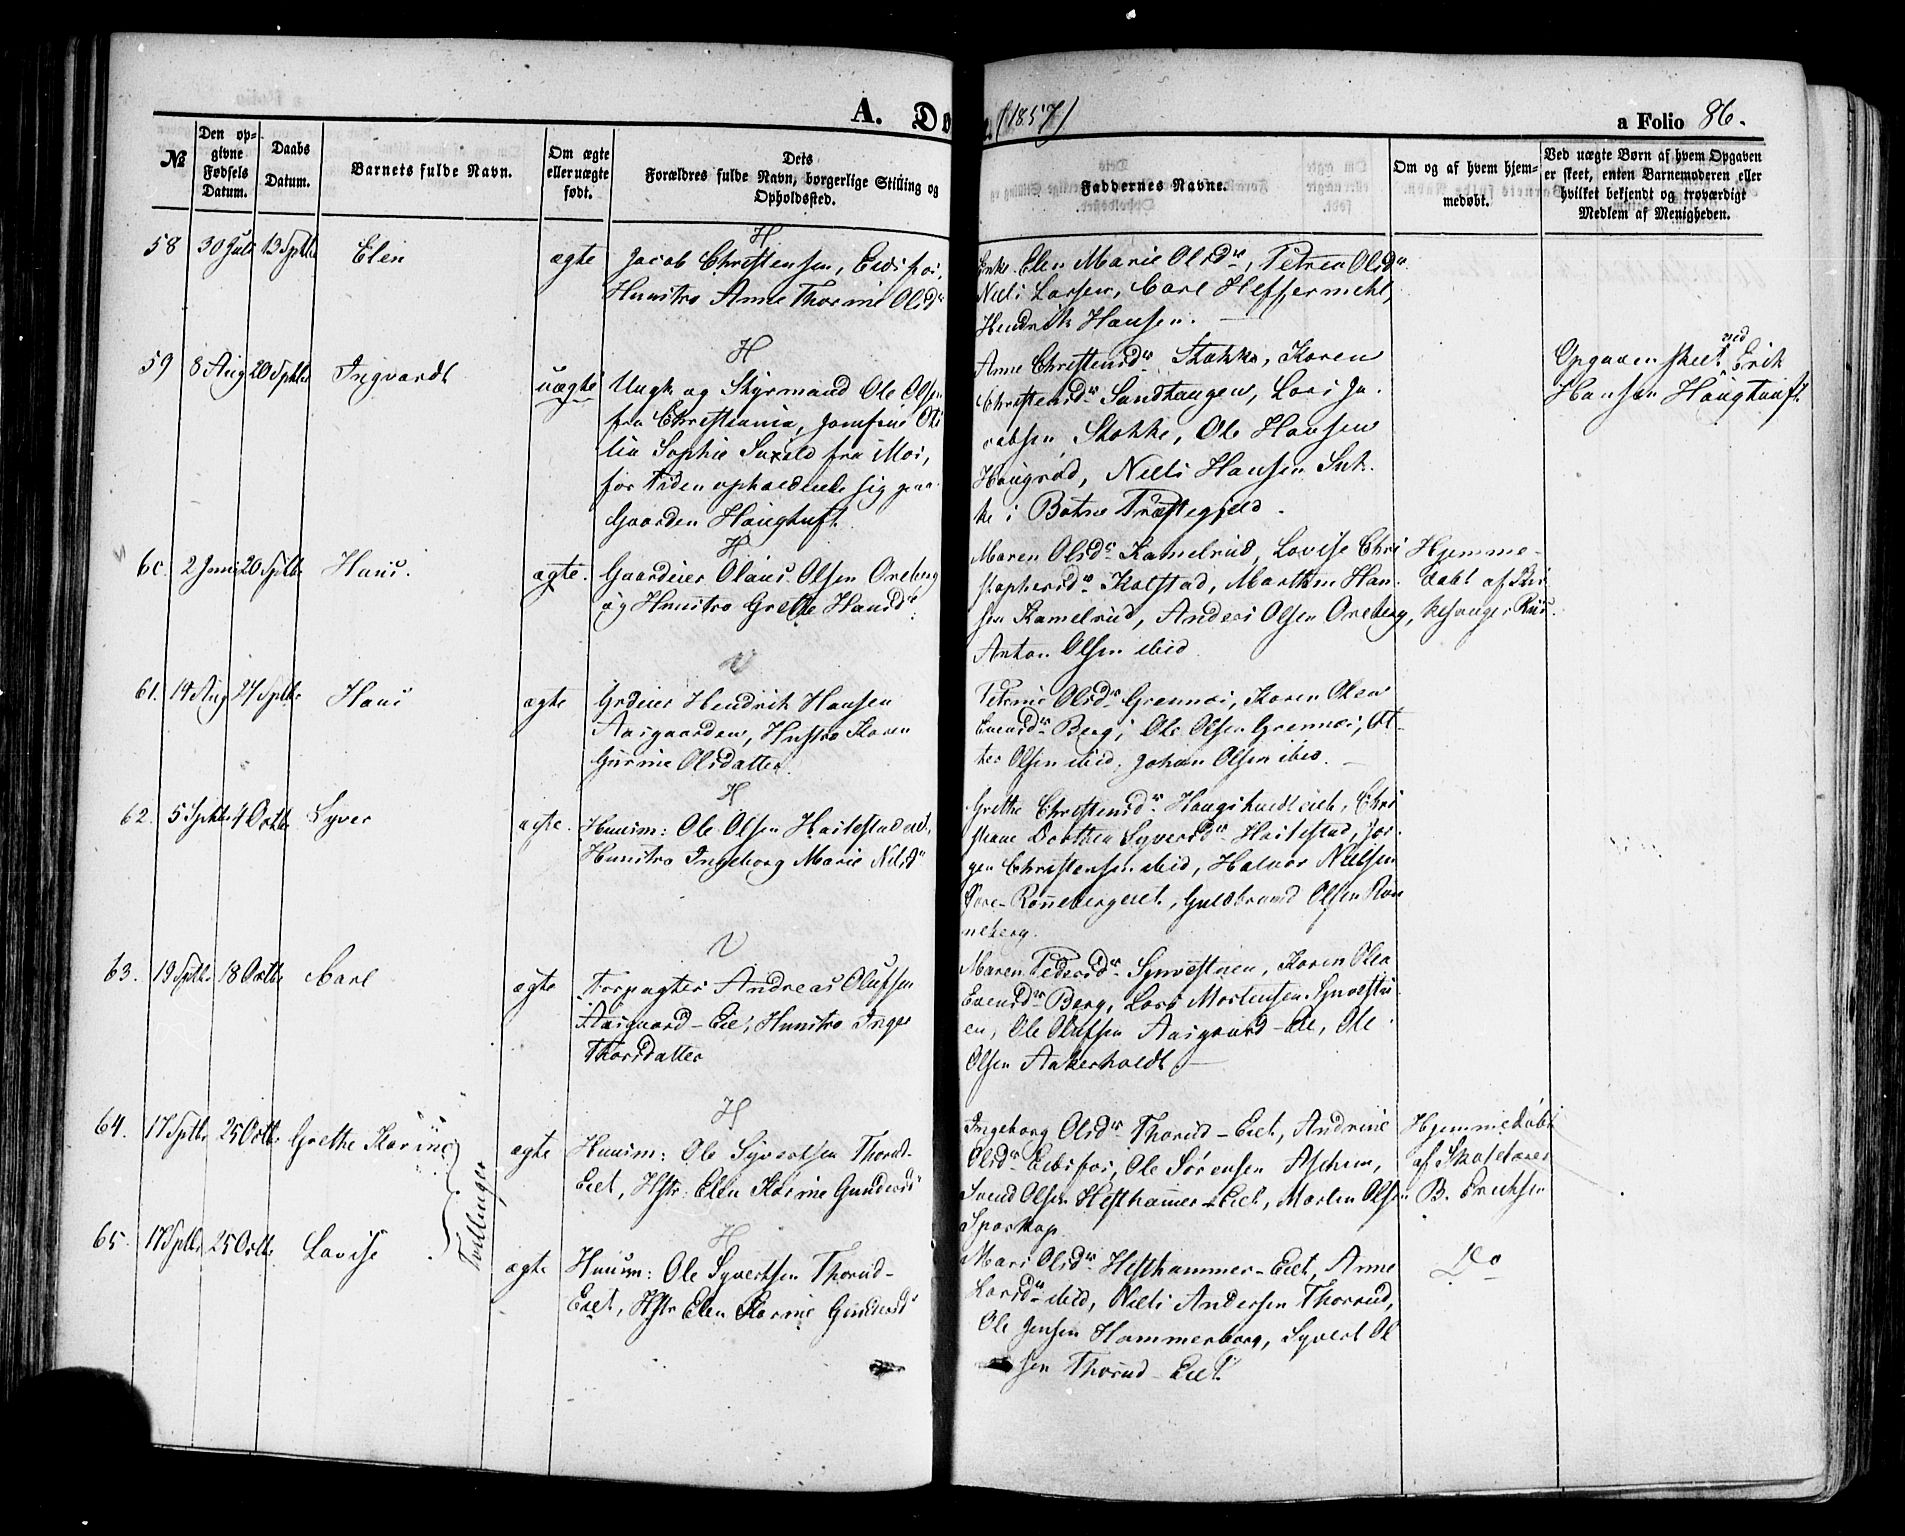 A. Dø
e. (1857)
a Folio 86.
№
Den op-
givne
Fødsels
Datum.
Daabs
Datum.
Barnets fulde Navn.
Om ægte
eller uægte
født.
Dets
Forældres fulde Navn, borgerlige Stilling og
Opholdssted.
Faddernes Navne.
Om og af hvem hjem-
medøbt.
Ved uægte Børn af hvem Opgaven
er skeet, enten Barnemoderen eller
hvilket bekjendt og troværdigt
Medlem af Menigheden.
H
58 30 Juli 13 Sptbr Elen ægte Jacob Christensen, Eidsfos,
Hunstro Anne Thorine Olsdr
Enke Elen Marie Olsdr, Petrea Olsdr
Niels Larsen, Carl Heffermehl,
Hendrik Hansen.
H
59 8 Aug 20 Sptbr Ingvardt uægte Ungk. og Styrmand Ole Olsen
fra Christiania, Jomfrue
lia Sophie fra Mos,
for Tiden opholdende sig paa
Gaarden Haugtuft
Anne Christensdr Stokke, Karen
Christensdr Sandhaugen, Lars Ja-
cobsen Stokke, Ole Hansen
Haugrød, Niels Hansen Snek-
ke i Botne Præstegjeld.
Opgaven skeet ved Erik
Hansen Haugtuft
H
60 2 Juni 20 Sptbr Hans. ægte. Gaardeier Olaus Olsen Oreberg
og Hunstro Grethe Hansdr.
Maren Olsdr Kamelrud, Lovise Chri
stophersdr Kolstad, Marthin Han-
sen Kamelrud, Anders Olsen Oreberg,
Anton Olsen ibid
Hjemme-
døbt af Kir
kesanger Riis.
V
61. 14 Aug 27 Sptbr Hans ægte Grdeier Hendrik Hansen
Aasgaarden, Hustro Karen
Gurine Olsdatter.
Petrine Olsdr Grennes, Karen Olea
Evensdr Berg, Ole Olsen Grennes, Ot-
ter Olsen ibid. Johan Olsen ibid.
H
62. 5 Sptbr 4 Octbr Syver ægte. Huusm: Ole Olsen Haslestad eiet,
Hunstro Ingeborg Marie Nilsdr
Grethe Christensdr Haugstvedt eiet, Chri
stiane Dorthea Syversdr Haslestad, Jør-
gen Christensen ibid, Halvor Nielsen
Øvre-Rønnebergeiet, Guldbrand Olsen Røn
neberg.
V
63. 19 Sptbr 18 Octbr Carl ægte Forpagter Andreas Olufsen
Aasgaard-Eiet, Hunstro Inger
Thorsdatter
Maren Pedersdr Synvestuen, Karen Olea
Evensdr Berg, Lars Mortensen Synvestu
en, Ole Olufsen Aasgaard-Eie, Ole
Olsen Aakerholdt.
H
64. 17 Sptbr 25 Octbr Grethe Karine ægte Huusm: Ole Syvertsen Thorud-
Eiet, Hstr. Elen Karine Gundersdr
Ingeborg Olsdr Thorud-Eiet, Andrine
Olsdr Eidsfos, Ole Sørensen Aschim,
Svend Olsen Hesthammer-Eiet, Martin Olsen
Sporkop
Hjemmedøbt
af Skolelærer
B. Eriksen
Tvillinger
H
65. 17 Sptbr 25 Octbr Lovise ægte Huusm: Ole Syvertsen Thorud-
Eiet, Hstr Elen Karine Gundersdr
Mari Olsdr Hesthammer-Eiet, Anne
Larsdr ibid, Niels Andersen Thorud,
Ole Jensen Hammerborg, Syvert Ol
sen Thorud-Eiet.
Do